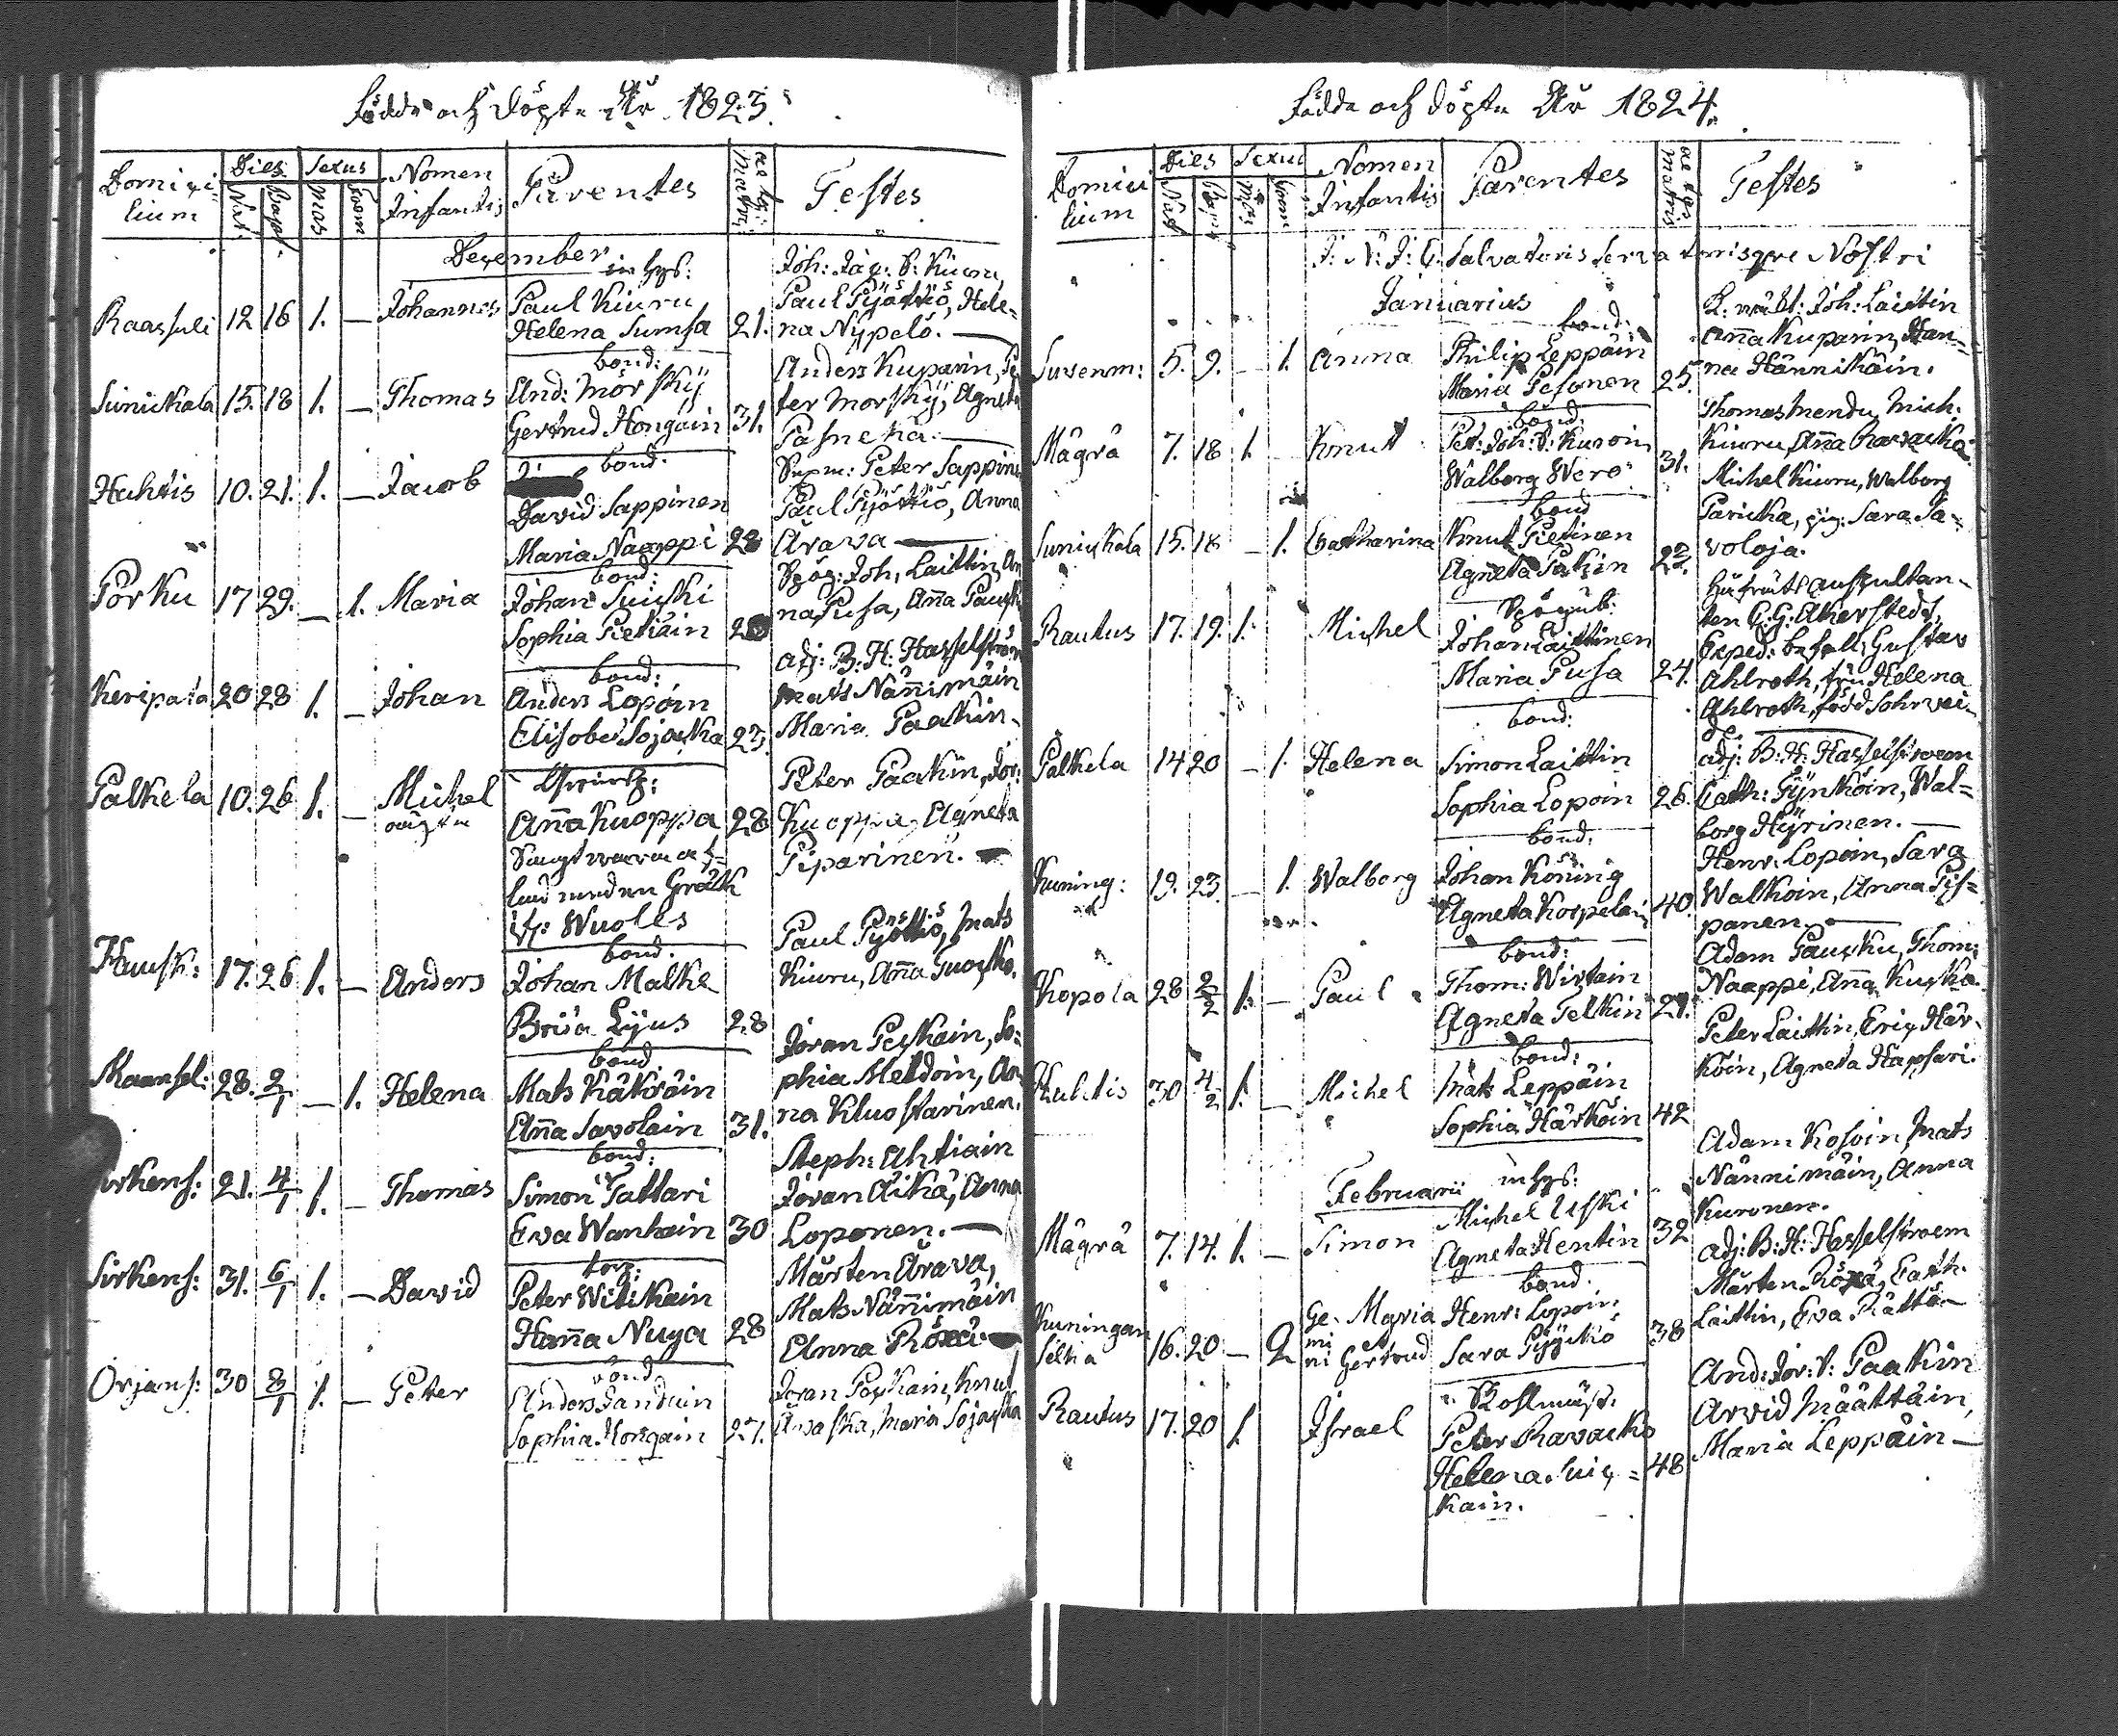 Födde och Döpte År 1823.
Domici-
lium
Dies
Nat.
Bapt.
Sexus
Mas
Foem
Nomen
Infantis
Parentes
aetas
Matris
Testes
December
Raassuli 12 16 1. — Johannes
inhys:
Paul Kiuru
Helena Sumsa 21.
Joh: Jac: S: Kiuru
Paul Pyöttiö, Hele-
na Nypelö. —
Sunickala 15. 18 1. — Thomas
bond:
And: Mörskÿ
Gertrud Hongain 31.
Anders Kuparin, Pe
ter Morskÿ, Agneta
Huhtis 10. 21. 1. — Jacob
bond:
David Sappinen
Maria Naappi 28
Peter Sappinen
Paul Pyöttiö, Anna
Arawa —
Porku 17 29. — 1. Maria
bond:
Johan Suicki
Sophia Pietiäin
Joh, Laittin, An
na Pusa, Anna Pauck
Keripata 20 28 1. — Johan
bond:
Anders Lopoin
Elisabe Sojacka 23.
adj: B: H: Hasselström
Mats Nännimäin
Maria Paakin.
Palkela 10. 26 1. — Michel
oägta
Anna Kuoppa 28
Wuolls
Peter Paakin, Jör:
Kuoppa, Agneta
Piparinen. —
Hausk: 17. 26 1. — Anders
bond:
Johan Malke
Brita Lijus 28
Paul Pyöttiö, Mats
Kiuru, Anna
Maansel: 28. 2/1 — 1. Helena
bond
Mats Käkröin
Anna Savolain 31.
Joran Peskain, So-
phia Meldoin, An
na Kluostarinen.
irkens: 21. 4/1 1. — Thomas
bond:
Simon Tattari
Eva Wanhain 30
Steph: Ahtiain
Joran Aikä, Anna
Loponen. —
Sirkens: 31. 6/1 1. — David
torp:
Peter Witikain
Hanna Nuya 28
Mårten Arava,
Mats Nännimäin
Anna Röxä —
Orjans: 30 8/1 1. — Peter
bond
Anders
Sophia Hongain 27.
Joran Peskain, Knut
Awaska, Maria Sojacka
Födde och Döpte År 1824.
Domici
lium
Dies
Nat
Bapt
Sexus
Mas
Foem
Nomen
Infantis
Parentes
aetas
Matris
Testes
J: N: J: C: Salvatoris Servatorisque Nostri
Januarius
Suvenm: 5. 9. — 1. Anna
bond:
Philip Leppäin
Maria Pesonen 25.
Joh: Laittin
Anna Kuparin, Han-
na Hännikäin.
Mägrä 7. 18 1. Knut
bond
Pet: Joh: S: Kuroin
Walborg Wero 31.
Thomas Mendu, Mich:
Kiuru, Anna Ravacka.
Sunickala 15. 18 — 1. Catharina
bond
Knut Pietinen
Agneta 22.
Michel Kiuru, Walborg
Paricka, pig: Sara Sa-
voloja.
Rautus 17. 19. 1. Michel
Johan Laittinen
Maria Pusa 24.
ten C: G: Åkerstedt,
Exped: Befall: Gustav
Ahlroth, fru Helena
Ahlroth, född
Palkela 14 20 — 1. Helena
bond:
Simon Laittin
Sophia Lopoin 26.
adj: B: H: Hasselstroem
Cath: Pynköin, Wal-
borg Hyrinen. —
Kuning: 19. 23 — 1. Walborg
bond:
Johan Köning
Agneta Korpelain 40.
Henr: Lopoin, Sara
Walkoin, Anna Pis-
panen. —
Kopola 28 2/2 1. — Paul
bond:
Thom: Wirtain
Agneta Telkin 27.
Adam Pausku, Thom:
Naappi, Anna Kuska.
Huhtis 30 4/2 1. — Michel
bond:
Mats Leppäin
Sophia Härköin 42
Peter Laittin, Eric Här-
köin, Agneta Hapsari.
Februarii
Mägrä 7. 14. 1. — Simon
inhys:
Michel Uski
Agneta Hentin 32
Adam Kosoin, Mats
Nännimäin, Anna
Kuronen.
Kuningan
selkä 16. 20 — 2
Ge- Maria
mi et
ni Gertrud
bond:
Henr: Lopoin
Sara Pyykö 38
adj: B: H: Hasselstroem
Mårten Röxä, Cath.
Laittin, Eva Rättö —
Rautus 17. 20 1. Israel
Peter Ravacko
Helena Suic-
kain. 48
And: Jör: S: Paakin
Arvid Määttäin,
Maria Leppäin —